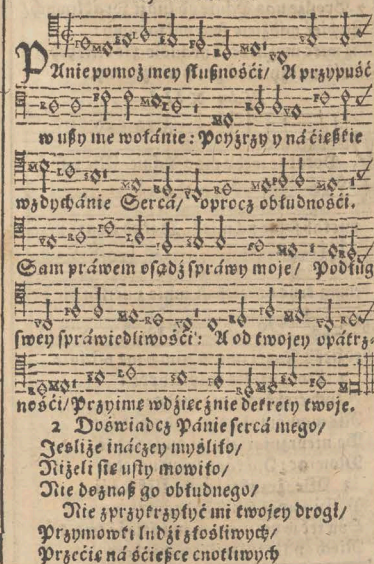 PAnie pomoż mey słußnośći/ A przypuść
w ußy me wołánie: Poyźrzy y ná ćięßkie
wzdychánie Sercá/ oprocz obłudnośći.
Sam práwem osądź spráwy moje/ Podług
swey spráwiedliwośći: A od twojey opátrz-
nośći/ Przyimę wdźięcznie dekrety twoje.
2 Doświadcz Pánie sercá mego/
Jesliże ináczey myśliło/
Niżeli się usty mowiło/
Nie doznaß go obłudnego/
Nie zprzykrzyłyć mi twojey drogi/
Przymowki ludźi złośliwych/
Przećię ná śćießce cnotliwych